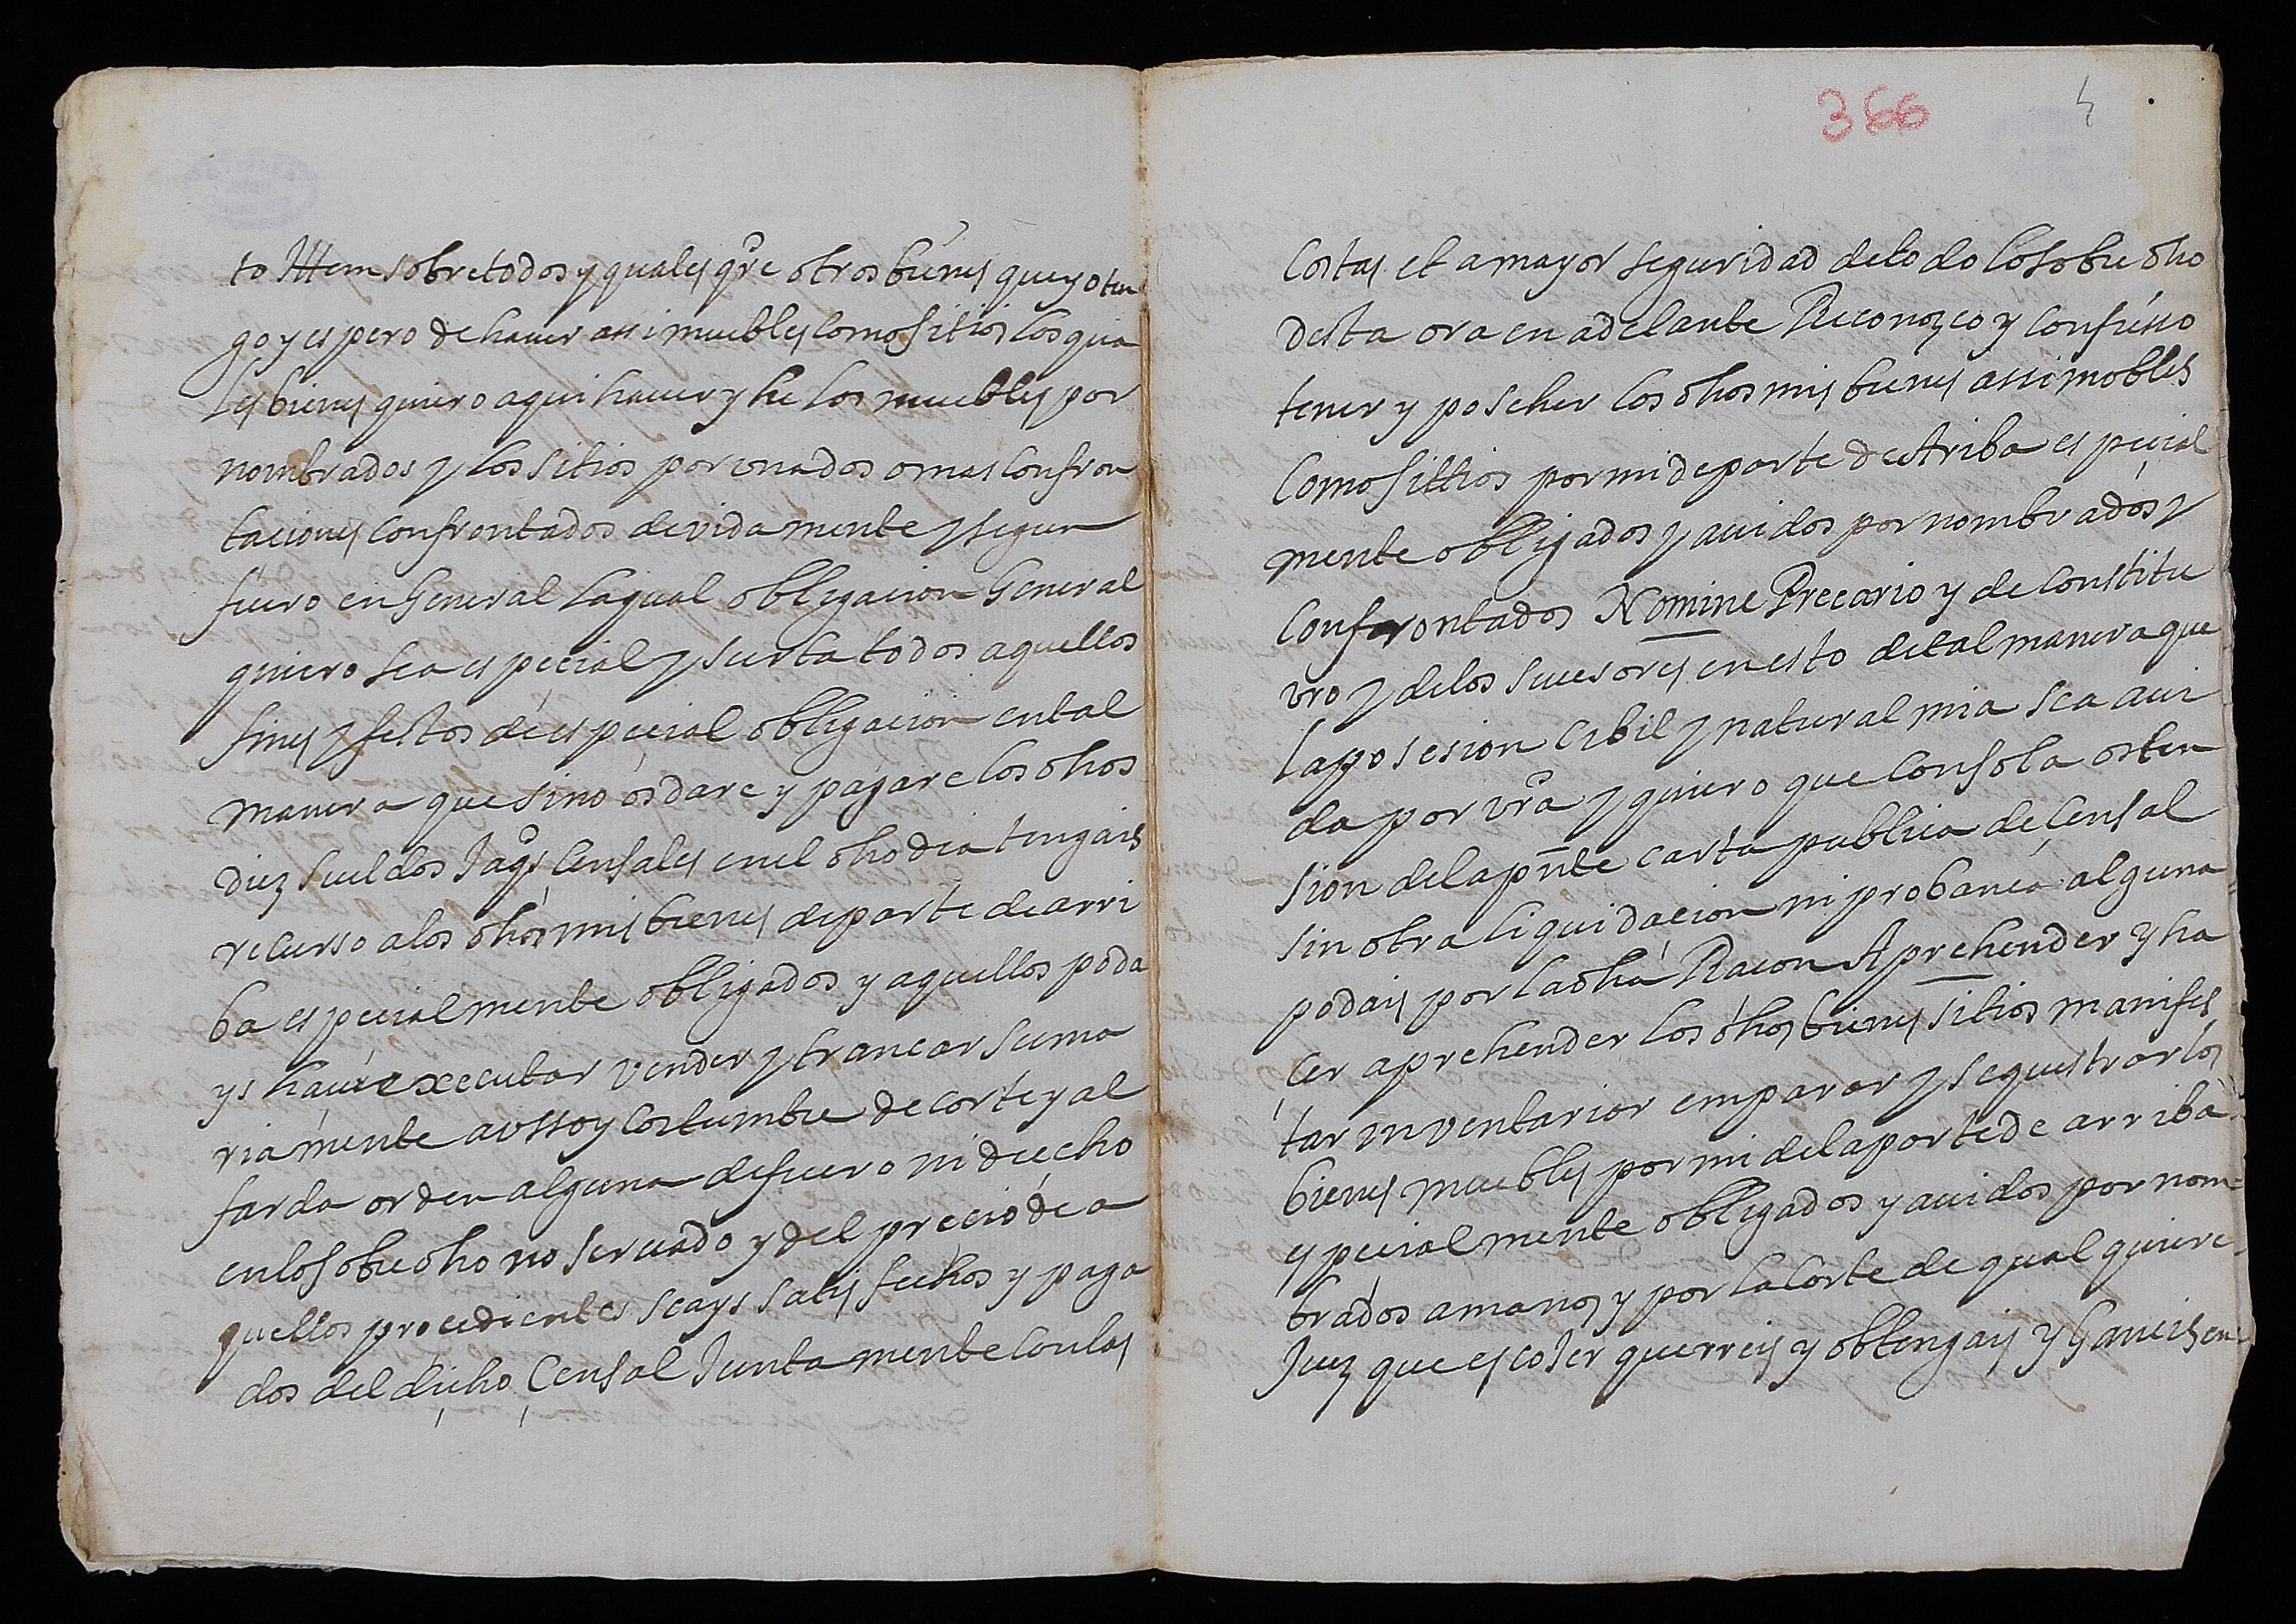 to Ittem sobre todos y quales qre otros bienes que yo ten
go y espero de hauer assi muebles como sitios los qua
les bienes quiero aqui hauer y he los muebles por
nombrados y los sitios por una dos o mas confron
taciones confrontados devidamente y segun
fuero en General la qual obligacion General
quiero sea especial y surta todos aquellos
fines y fectos de especial obligacion en tal
manera que si no os dare y pagare los dhos
diez sueldos Jaqs Censales en el dho dia tengais
recurso a los dhos mis bienes de parte de arri
ba especialmente obligados y aquellos poda
ys hauer executar vender y trancar suma
riamente a usso y costumbre de corte y al
farda orden alguna de fuero ni drecho
en lo sobredho no seruado y del precio de a
quellos procedientes seays satisfechos y paga
dos del dicho Censal Juntamente con las
366
4
Costas et a mayor seguridad de todo lo sobredho
desta ora en adelante Reconozco y confiesso
tener y poseher los dhos mis bienes assi mobles
Como sittios por mi de parte de Ariba especial
mente obligados y auidos por nombrados y
Confrontados Nomine Precario y de Constitu
vro y de los sucesores en esto de tal manera que
la posesion cibil y natural mia sea aui
da por vra y quiero que con sola osten
sion de la pnte carta publica de Censal
sin otra liquidacion ni probanca alguna
podais por la dha Racon Aprehender y ha
cer aprehender los dhos bienes sitios manifes
tar inventariar emparar y sequestrar los
bienes muebles por mi de la parte de arriba
especialmente obligados y auidos por nom
brados a manos y por la Corte de qual quiere
Juez que escoJer querreis y obtengais y Ganeis en